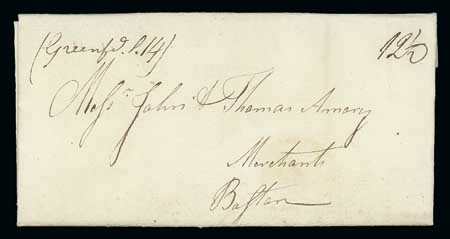 (Greenfd. S. 14) 12½
Messrs. John & Thomas Amory
Merchants
Boston